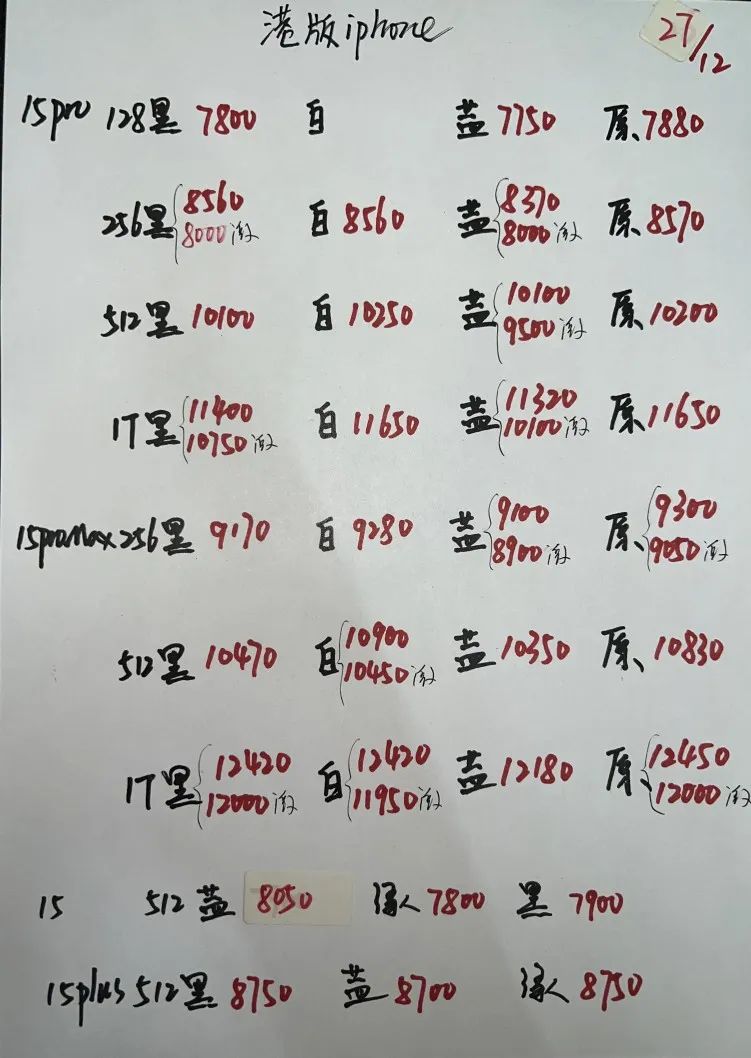 港版iphone 27/12
15pro 128黑 7800 白 蓝 7750 原 7880
256黑 8560 白 8560 蓝 8370 原 8570
8000激 8000激
512黑 10100 白 10250 蓝 10100 原 10200
9500激
1T黑 11400 白 11650 蓝 11320 原 11650
10750激 10100激
15proMax 256黑 9170 白 9280 蓝 9100 原 9300
8900激 9050激
512黑 10470 白 10900 蓝 10350 原 10830
10450激
1T黑 12420 白 12420 蓝 12180 原 12450
12000激 11950激 12000激
15 512 蓝 8050 绿 7800 黑 7900
15plus 512黑 8750 蓝 8700 绿 8750